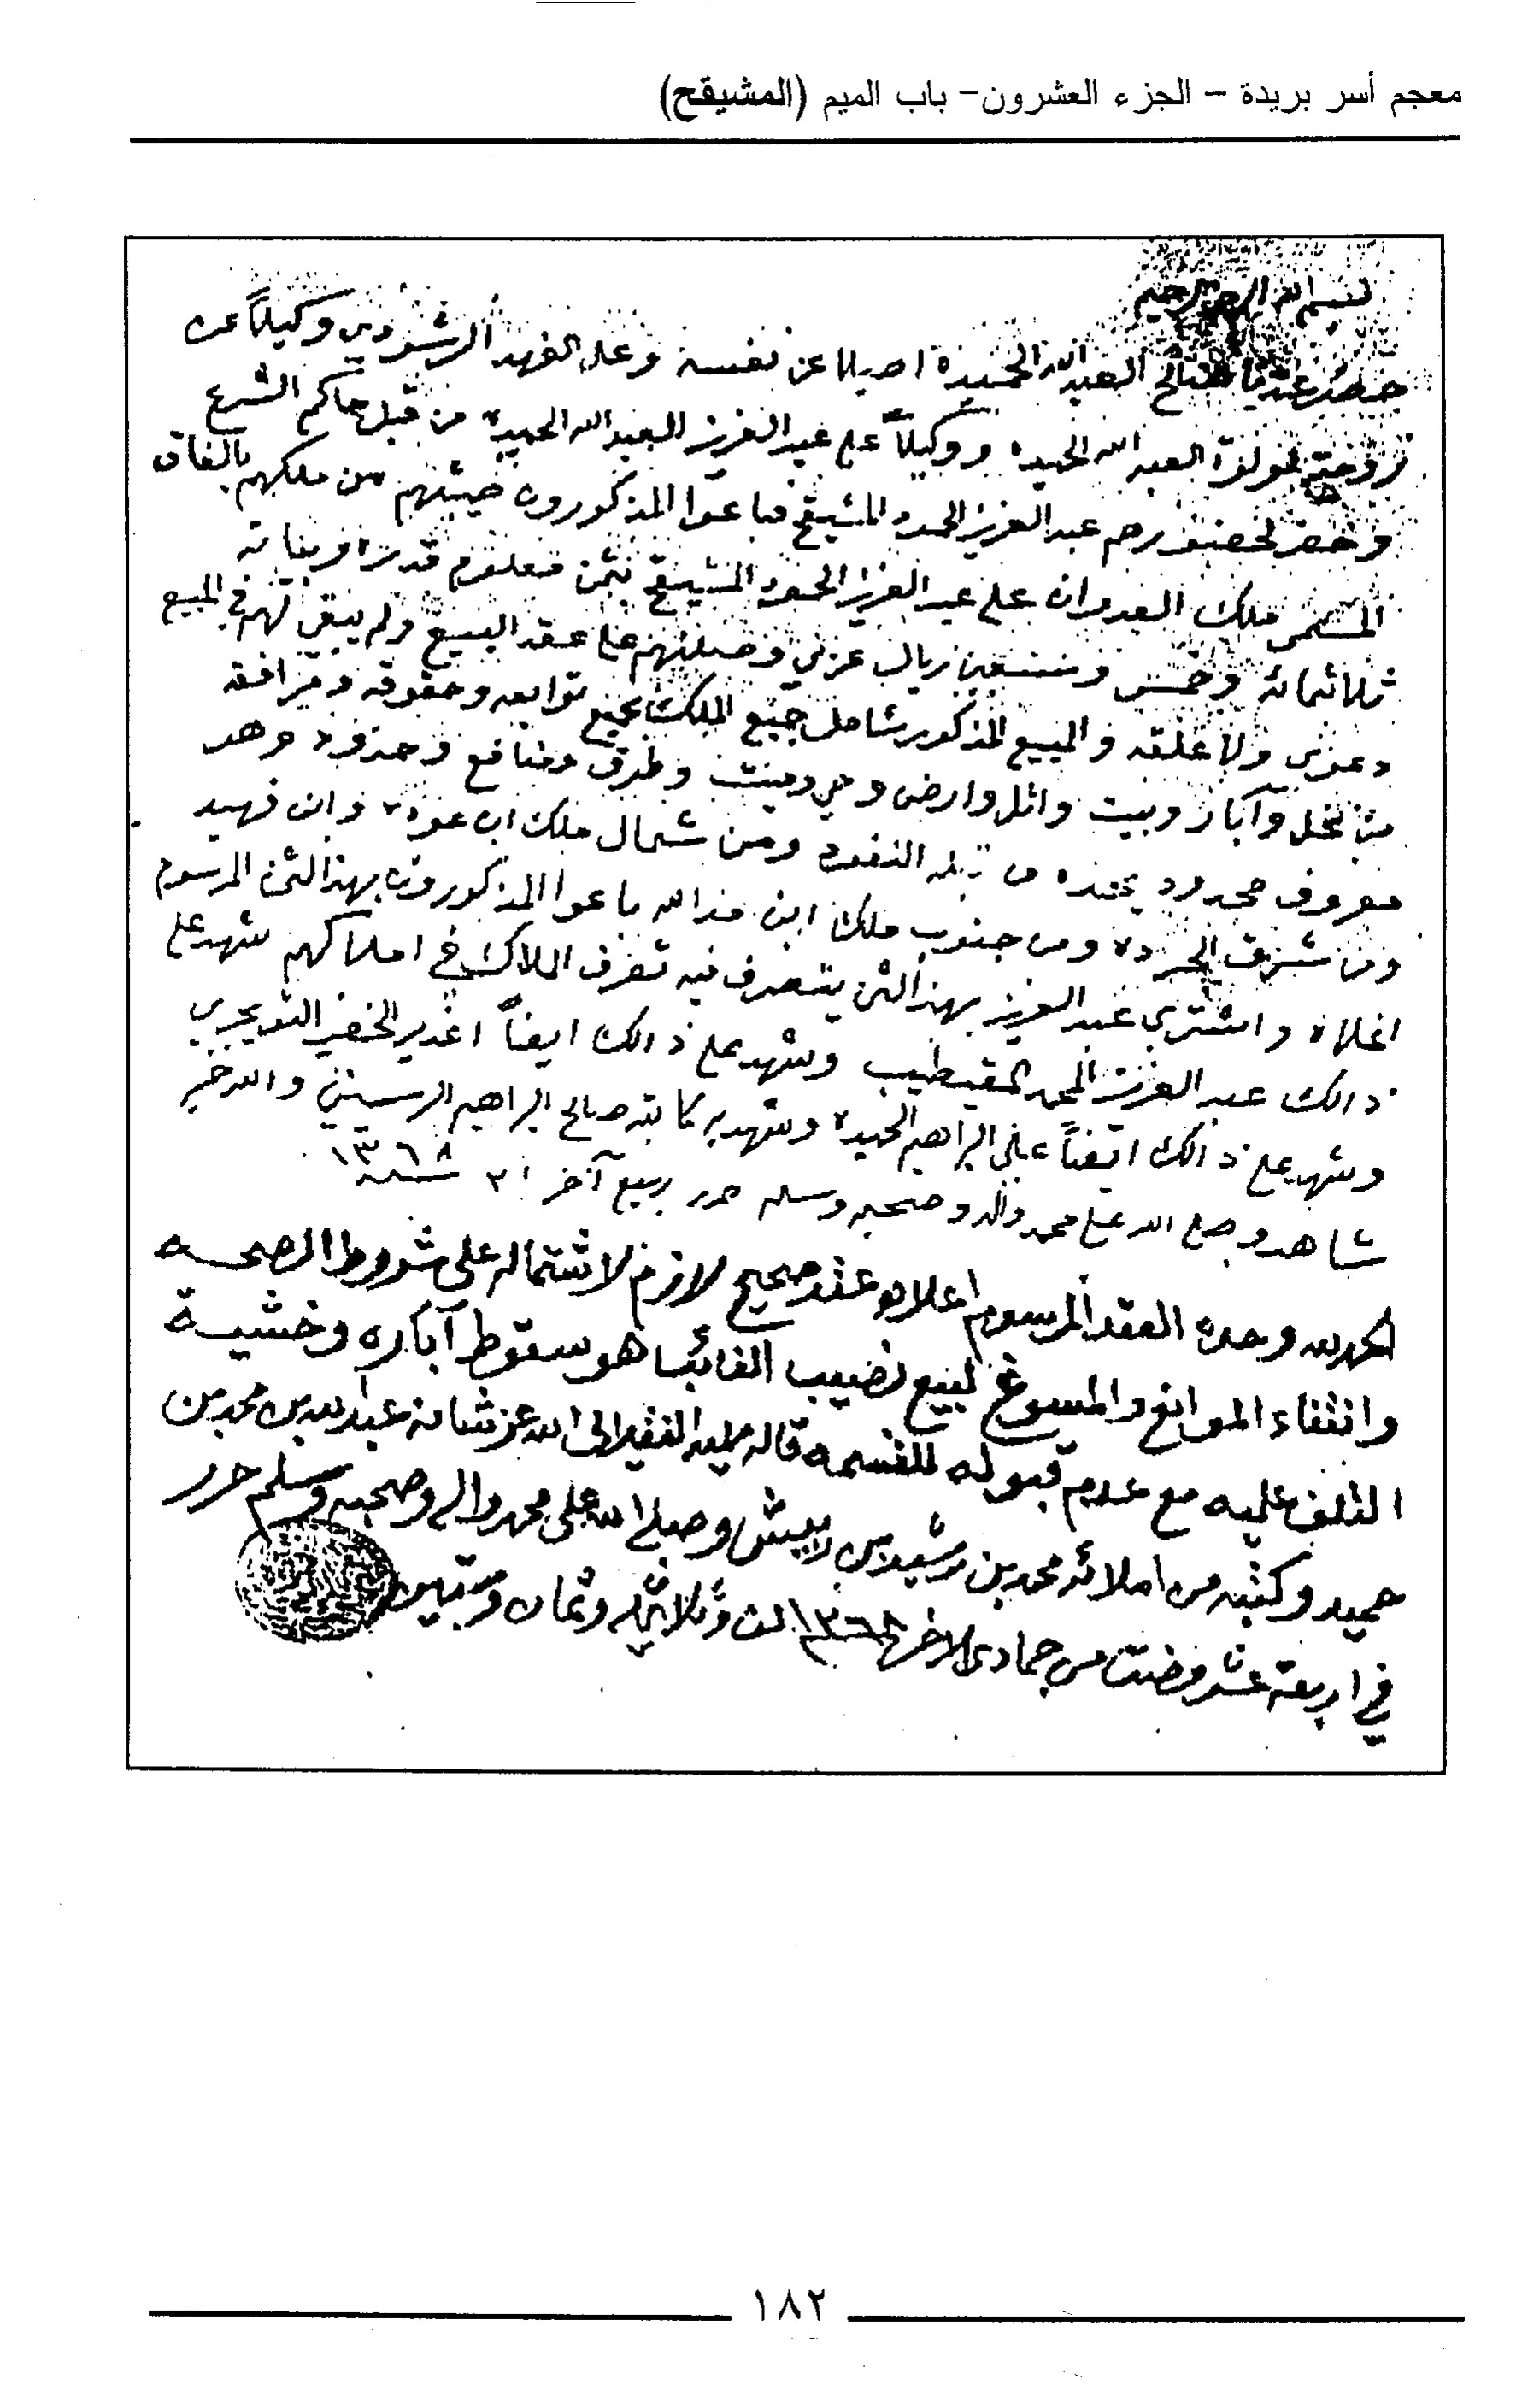 معجم أسر بريدة – الجزء العشرون– باب الميم (المشيقح)
بسم الله الرحمن الرحيم
حضر عندنا صالح العبد الله الحميده اصيلا عن نفسه وعلي الفهد الرشودي وكيلاً عن
زوجته لولوة العبد الله الحميده ووكيلاً على عبد العزيز العبد الله الحميده من قبل حاكم الشرع
وحضر لحضورهم عبد العزيز الحمود المشيقح فباعوا المذكورون من ملكهم بالفاق
المسمى ملك العدوان على عبد العزيز الحمود المشيقح بثمن معلوم قدره
ثلاثمائة وخمس ريال عربي وصلتهم على عقد البيع ولم يبقى لهم في المبيع
دعوى ولا علقه والمبيع المذكور شامل جميع الملك بجميع توابعه وحقوقه ومرافقه
من نخل وآبار وبيت واثل وارض وحي وميت وطرق ومنافع وحدود وهو
معروف محدود يحده من قبله النفود ومن شمال ملك ابن عوده وابن فهيد
ومن شرق الجرده ومن جنوب ملك ابن باعوا المذكورون بهذا الثمن المرسوم
اعلاه واشترى عبد العزيز بهذا الثمن يتصرف فيه تصرف الملاك في املاكهم شهد على
ذالك عبد العزيز المحمد المقيطيب وشهد على ذالك ايضاً الخضير التويجري
وشهد على ذالك ايضاً علي البراهيم الحميده وشهد به كاتبه صالح البراهيم الرسيني والله خير
شاهد وصلى الله على محمد وآله وصحبه وسلم حرر ربيع آخر سنه ١٣٦٨
الحمد لله وحده العقد المرسوم اعلاه عقد صحيح لازم لاشتماله على شروط الصحه
وانتفاء الموانع والمسوغ لبيع نصيب الغائب هو سقوط آباره وخشية
التلف عليه مع عدم قبوله للقسمه قاله ممليه الفقير الى الله عز شانه عبد الله بن محمد بن
حميد وكتبه من املائه محمد بن رشيد بن ربيش وصلى الله على محمد واله وصحبه وسلم حرر
في اربعة عشر مضت من جمادى الاخر ١٣٦٨ الف وثلاثمائه وثمان وستين
١٨٢